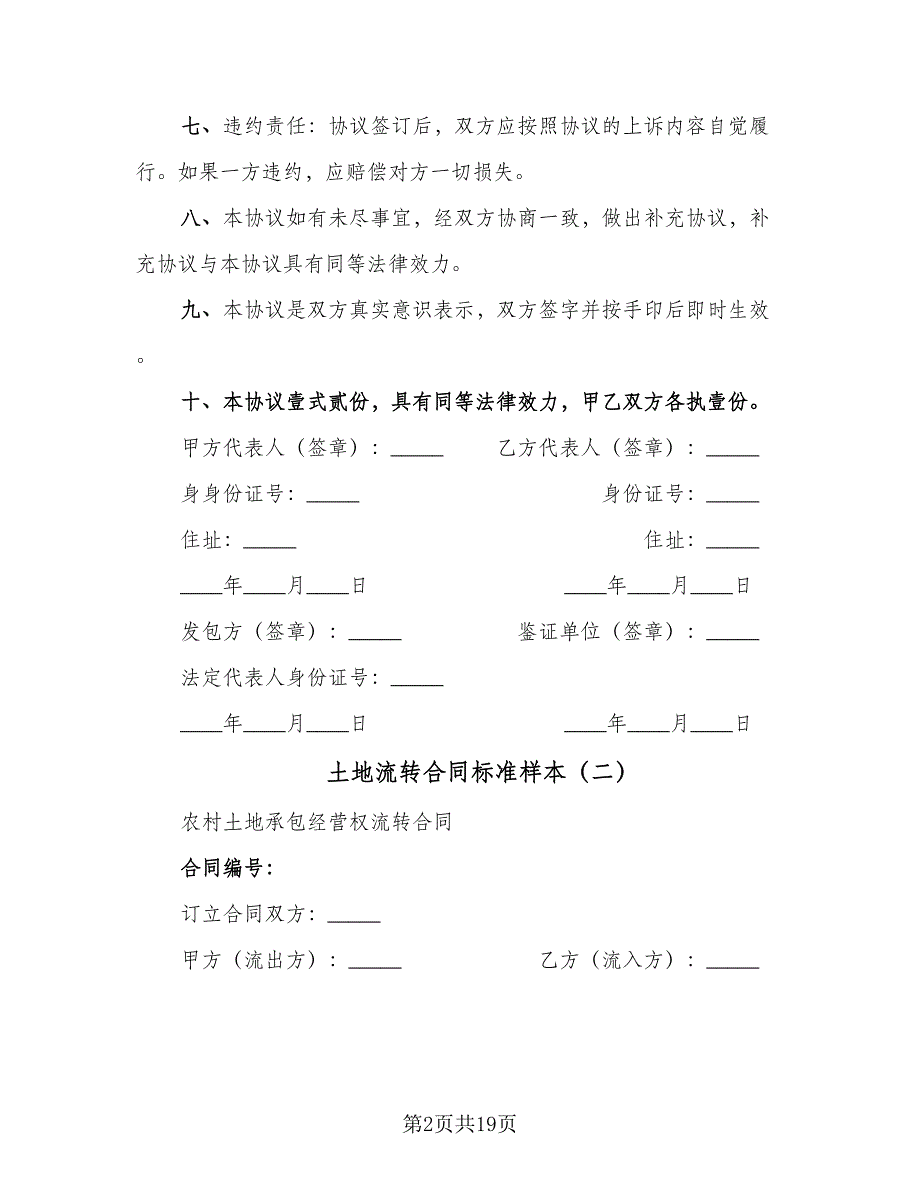 七、违约责任：协议签订后，双方应按照协议的上诉内容自觉履
行。如果一方违约，应赔偿对方一切损失。
八、本协议如有未尽事宜，经双方协商一致，做出补充协议，补
充协议与本协议具有同等法律效力。
九、本协议是双方真实意识表示，双方签字并按手印后即时生效
。
十、本协议壹式贰份，具有同等法律效力，甲乙双方各执壹份。
甲方代表人（签章）：_____ 乙方代表人（签章）：_____
身身份证号：_____ 身份证号：_____
住址：_____ 住址：_____
____年____月____日 ____年____月____日
发包方（签章）：_____ 鉴证单位（签章）：_____
法定代表人身份证号：_____
____年____月____日 ____年____月____日
土地流转合同标准样本（二）
农村土地承包经营权流转合同
合同编号：
订立合同双方：_____
甲方（流出方）：_____ 乙方（流入方）：_____
第2页共19页